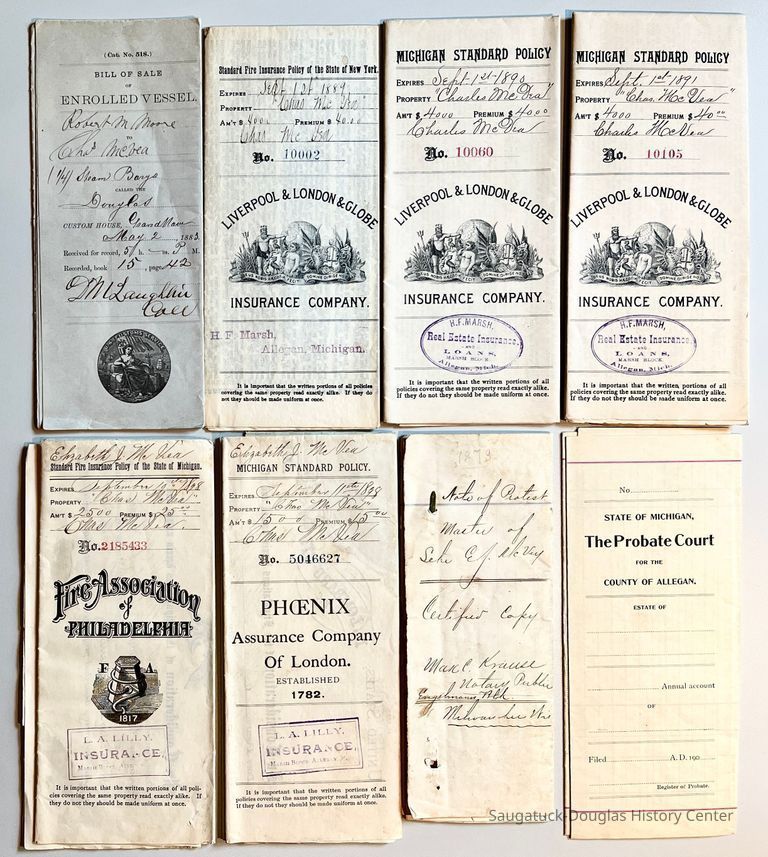 (Cat. No. 518.)
BILL OF SALE
OF
ENROLLED VESSEL.
Robert M. Moore
TO
Chas McVea
Steam Barge
CALLED THE
Douglas
CUSTOM HOUSE, Grand Haven
May 2, 1883
Received for record, 5 h. m. P M.
Recorded, book 15, page 42
D McLaughlin
Coll
Standard Fire Insurance Policy of the State of New York.
EXPIRES Sept 1st 1889
PROPERTY "Chas Mc Vea"
AM'T $ 4000 PREMIUM $ 40.00
Chas Mc Vea
No. 10002
LIVERPOOL & LONDON & GLOBE
INSURANCE COMPANY.
H. F. Marsh,
Allegan, Michigan.
It is important that the written portions of all policies
covering the same property read exactly alike. If they do
not they should be made uniform at once.
MICHIGAN STANDARD POLICY
EXPIRES Sept 1st 1890
PROPERTY "Charles Mc Vea"
AM'T $ 4000 PREMIUM $ 4000
Charles McVea
No. 10060
LIVERPOOL & LONDON & GLOBE
INSURANCE COMPANY.
H.F. MARSH,
Real Estate Insurance.
AND
LOANS,
MARSH BLOCK
Allegan, Mich.
It is important that the written portions of all
policies covering the same property read exactly alike.
If they do not they should be made uniform at once.
MICHIGAN STANDARD POLICY
EXPIRES Sept. 1st 1891
PROPERTY "Chas. Mc Vea"
AM'T $ 4000 PREMIUM $ 40.00
Charles McVea
No. 10105
LIVERPOOL & LONDON & GLOBE
INSURANCE COMPANY.
H.F. MARSH,
Real Estate Insurance.
AND
LOANS,
MARSH BLOCK
Allegan, Mich.
It is important that the written portions of all
policies covering the same property read exactly alike.
If they do not they should be made uniform at once.
Elizabeth J. Mc Vea
Standard Fire Insurance Policy of the State of Michigan.
EXPIRES September 1898
PROPERTY "Chas McVea"
AM'T $ 2500 PREMIUM $ 25.00
Chas McVea.
No. 2185433
Fire Association
of
PHILADELPHIA
F A
1817
L. A. LILLY,
INSURANCE,
It is important that the written portions of all poli-
cies covering the same property read exactly alike. If
they do not they should be made uniform at once.
Elizabeth J. Mc Vea
MICHIGAN STANDARD POLICY.
EXPIRES September 11th 1898
PROPERTY "Chas Mc Vea"
AM'T $ 1500 PREMIUM $
Chas Mc Vea
No. 5046627
PHŒNIX
Assurance Company
Of London.
ESTABLISHED
1782.
L. A. LILLY,
INSURANCE,
It is important that the written portions of all
policies covering the same property read exactly alike.
If they do not they should be made uniform at once.
1879
Note of Protest
Master of
Certified Copy
Max C. Krause
Notary Public
Milwaukee Wis
No.
STATE OF MICHIGAN,
The Probate Court
FOR THE
COUNTY OF ALLEGAN.
ESTATE OF
Annual account
OF
Filed A.D. 190
Register of Probate.
Saugatuck-Douglas History Center